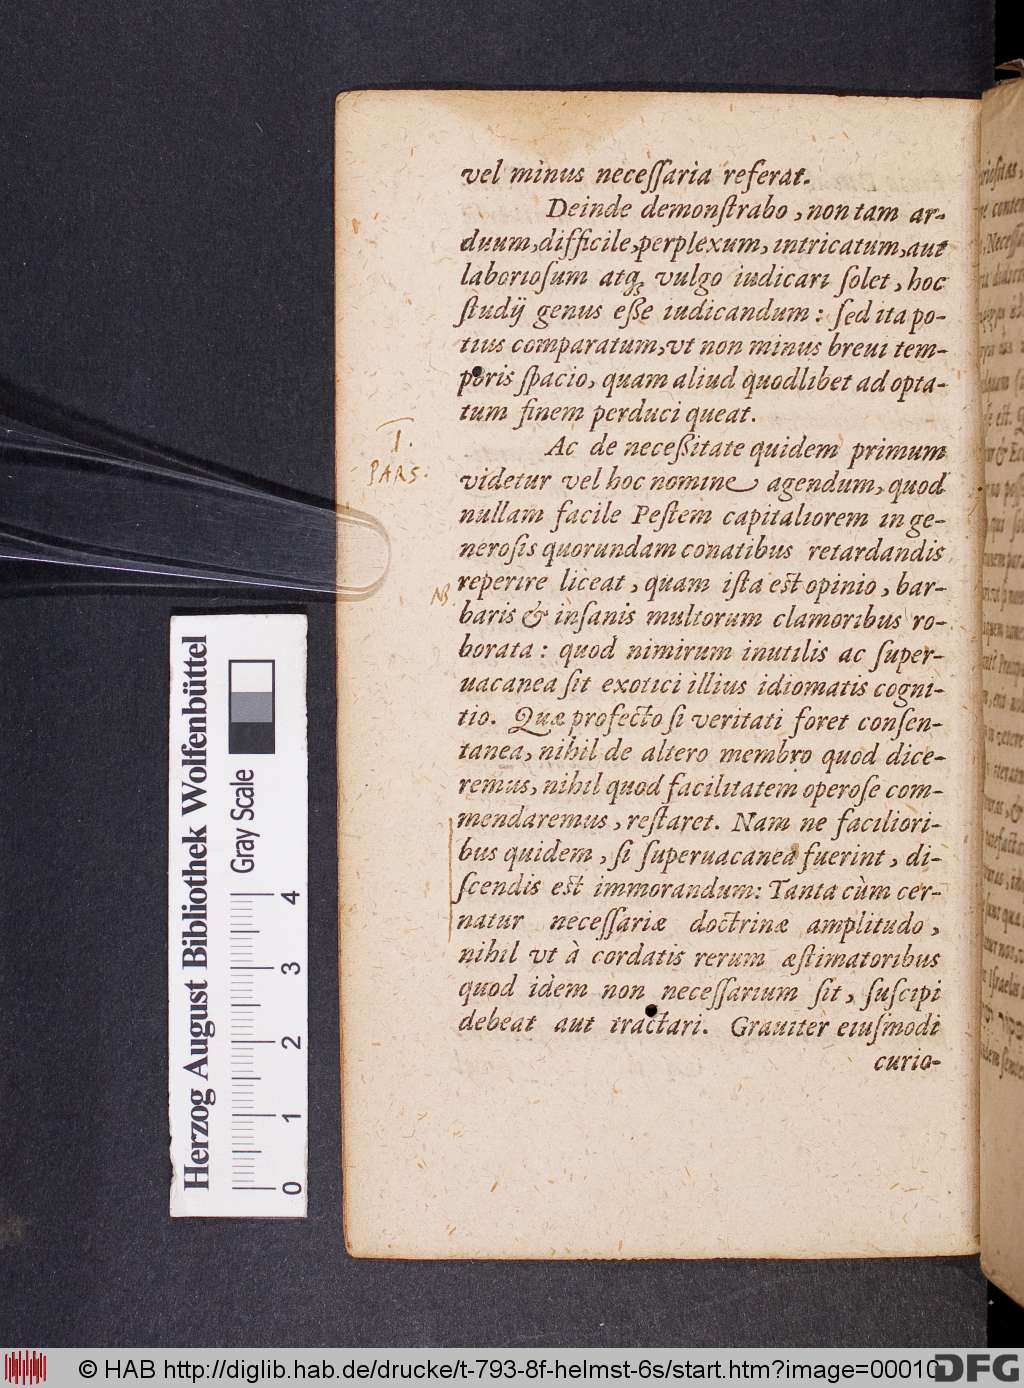 vel minus neceſſaria referat.
Deinde demonſtrabo, non tam ar-
duum, difficile, perplexum, intricatum, aut
laborioſum atq; vulgo iudicari ſolet, hoc
ſtudij genus eſſe iudicandum: ſed ita po-
tius comparatum, vt non minus breui tem-
poris ſpacio, quam aliud quodlibet ad opta-
tum finem perduci queat.
I.
PARS.
Ac de neceßitate quidem primum
videtur vel hoc nomine agendum, quod
nullam facile Peſtem capitaliorem in ge-
neroſis quorundam conatibus retardandis
NB.
reperire liceat, quam iſta eſt opinio, bar-
baris & inſanis multorum clamoribus ro-
borata: quod nimirum inutilis ac ſuper-
uacanea ſit exotici illius idiomatis cogni-
tio. Quæ profecto ſi veritati foret conſen-
tanea, nihil de altero membro quod dice-
remus, nihil quod facilitatem operoſe com-
mendaremus, reſtaret. Nam ne facilíori-
bus quidem, ſi ſuperuacanea fuerint, di-
ſcendis eſt immorandum: Tanta cùm cer-
natur neceſſariæ doctrinæ amplitudo,
nihil vt à cordatis rerum æſtimatoribus
quod idem non neceſſarium ſit, ſuſcipi
debeat aut tractari. Grauiter eiuſmodi
curio-
Herzog August Bibliothek Wolfenbüttel
Gray Scale
0 1 2 3 4
© HAB http://diglib.hab.de/drucke/t-793-8f-helmst-6s/start.htm?image=00010
DFG